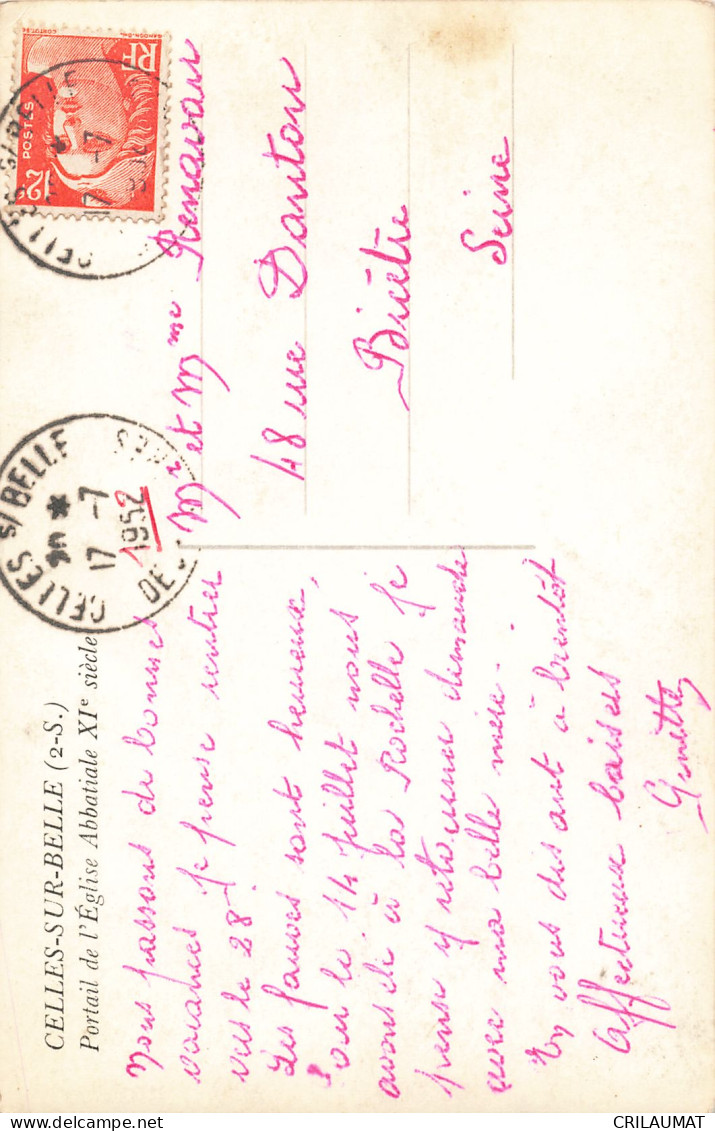 CELLES-SUR-BELLE (2-S.)
Portail de l'Église Abbatiale XIe siècle
Nous passons de bonnes
vacances je pense rentrer
vers le 28.
Les sont heureux,
Pour le 14 juillet nous
avons été à la Rochelle je
pense y retourner dimanche
avec ma belle mère.
En vous disant à bientôt
Affectueux baisers
Ginette
CELLES s/ BELLE
20 *
17 -7
1952
DE
CELLES s/ BELLE
*
17 -7
RF
POSTES
12F
Mr et Mme Renavan
48 rue Danton
Bicêtre
Seine
CRILAUMAT